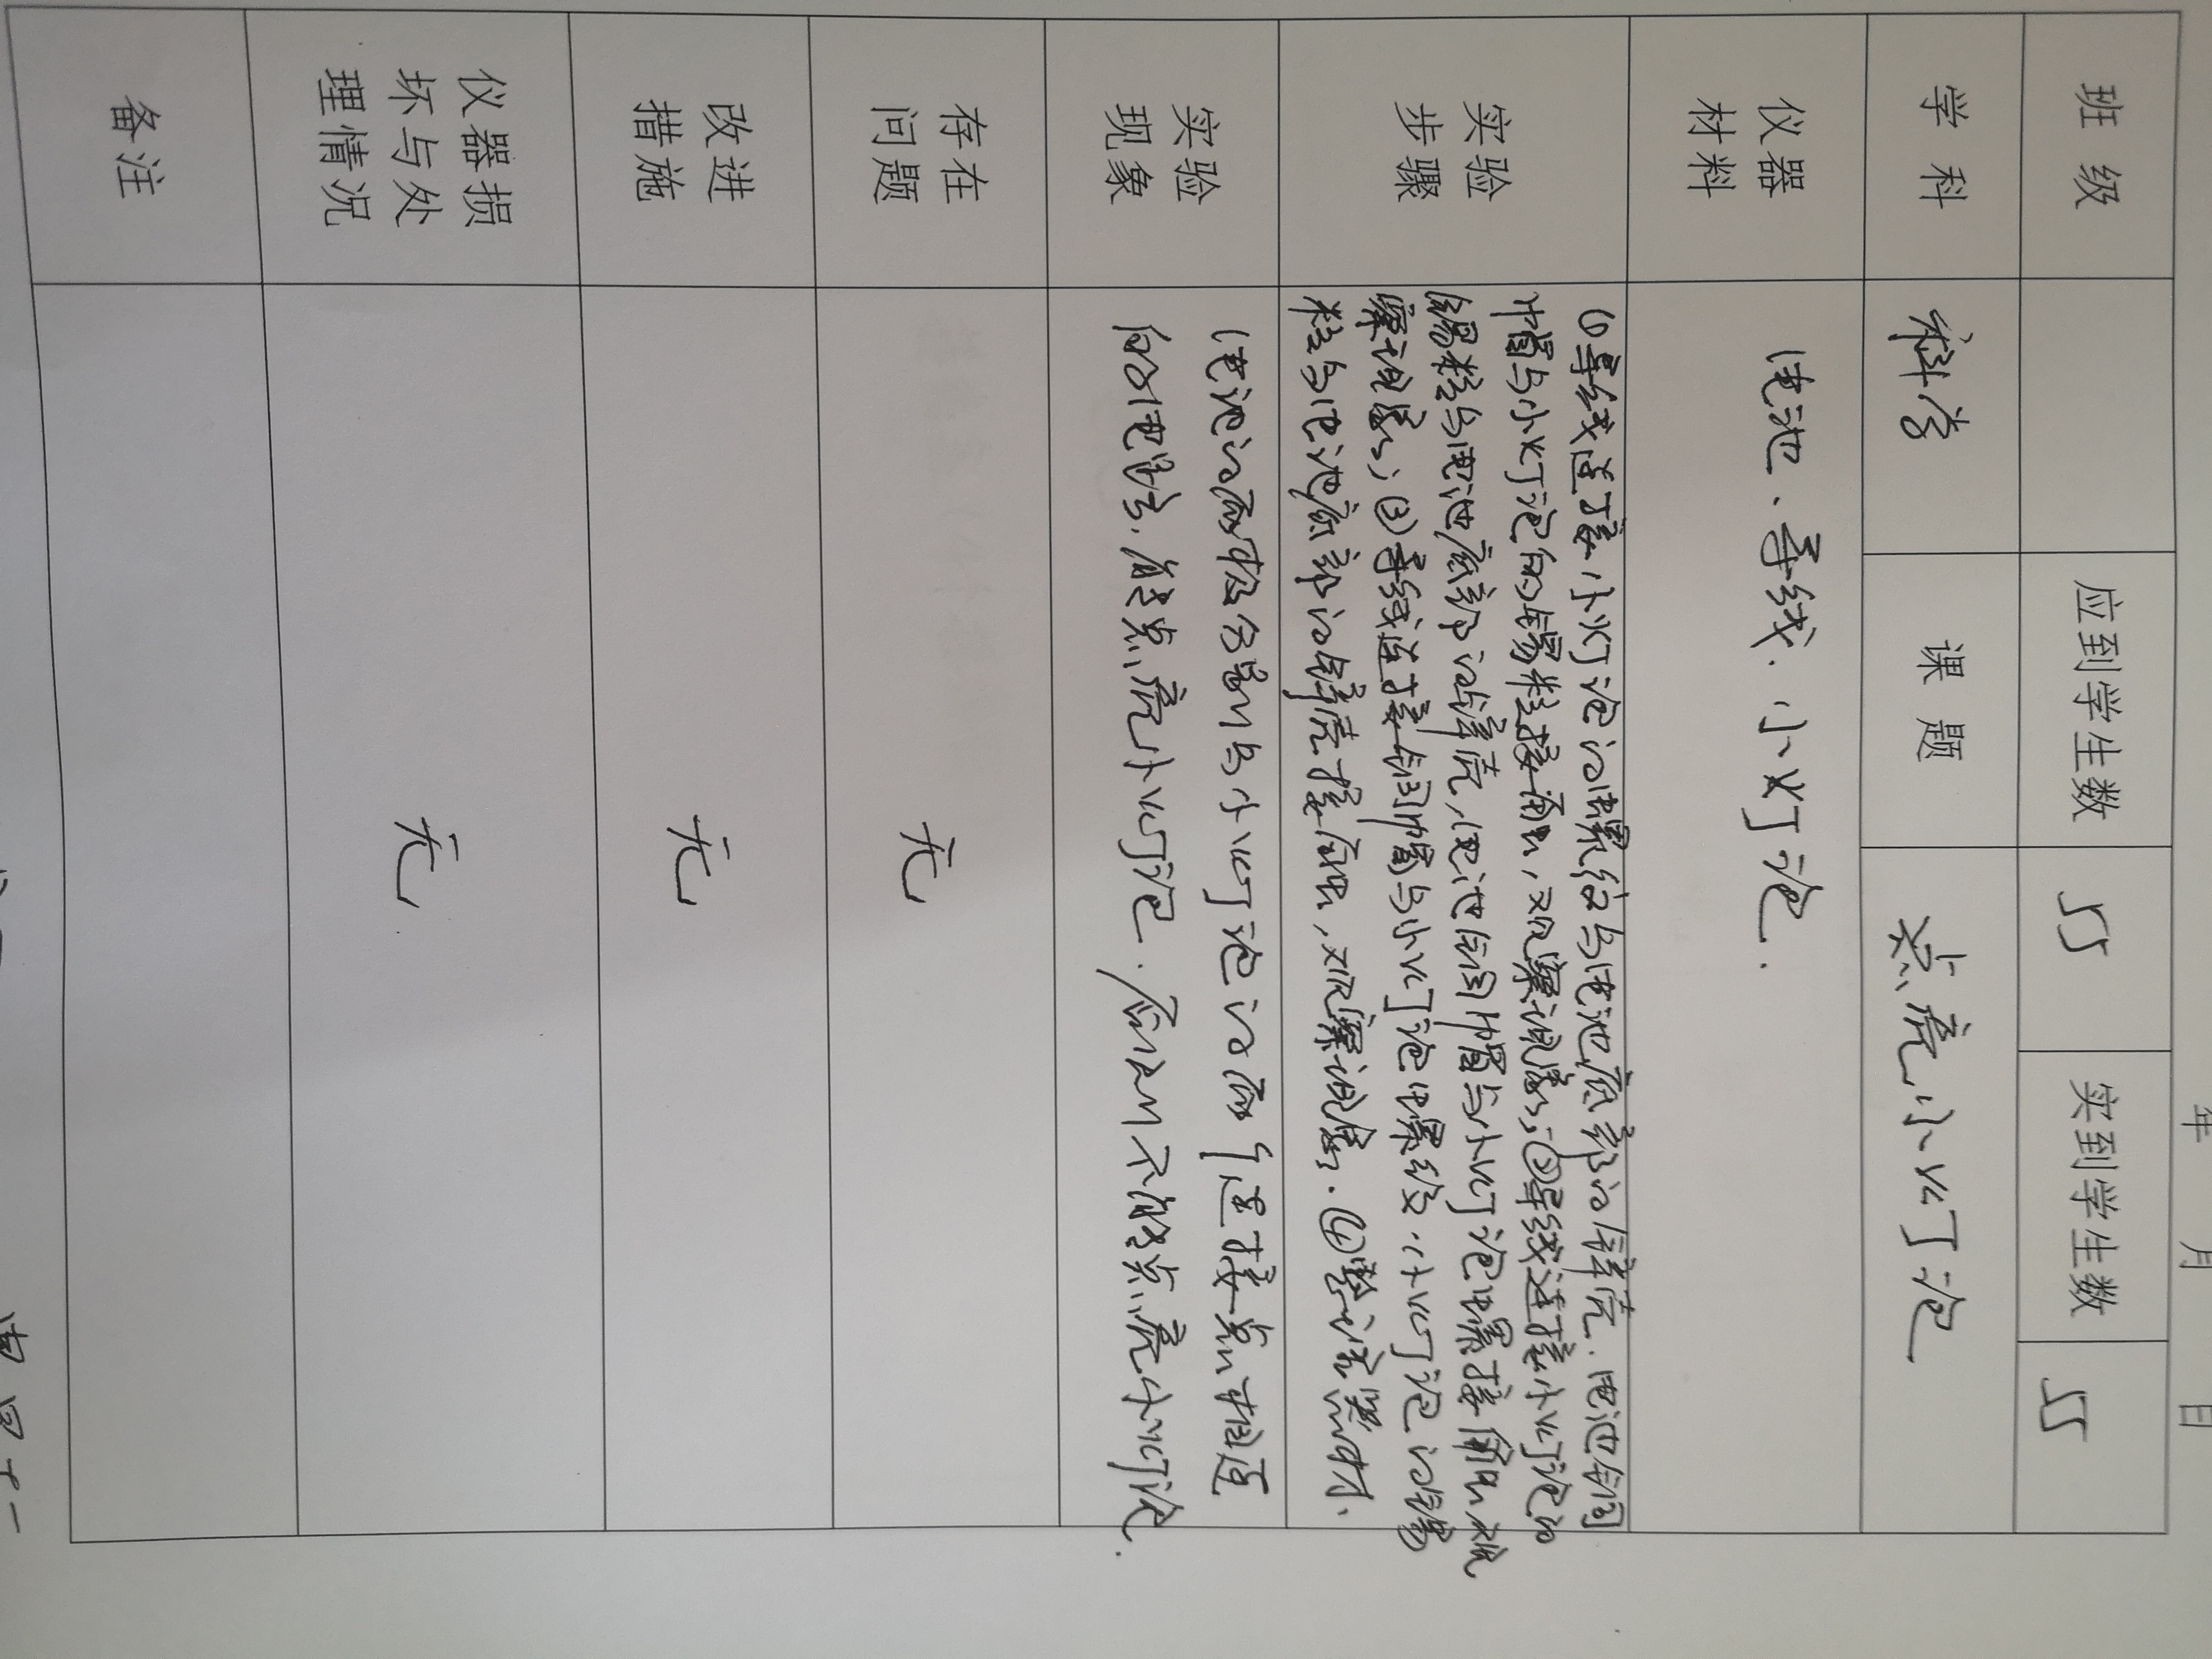 年 月 日
班 级 应到学生数 55 实到学生数 55
学 科 科学 课 题 点亮小灯泡
仪器
材料
电池、导线、小灯泡.
实验
步骤
①导线连接小灯泡的螺纹与电池底部的锌壳.电池铜
帽与小灯泡的锡粒接触,观察现象;②导线连接小灯泡的
锡粒与电池底部的锌壳,电池铜帽与小灯泡螺接触,观
察现象;③导线连接铜帽与小灯泡螺纹,小灯泡的锡
粒与电池底部的锌壳接触,观察现象.④整理器材.
实验
现象
电池的两极分别与小灯泡的两个连接点相连
的电路,能点亮小灯泡.否则不能点亮小灯泡.
存在
问题
无
改进
措施
无
仪器损
坏与处
理情况
无
备注